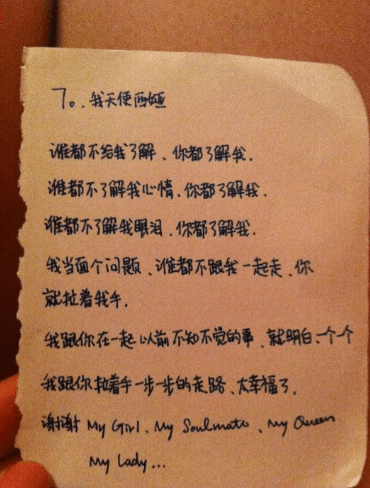 To. 我天使西娅
谁都不给我了解、你都了解我.
谁都不了解我心情、你都了解我.
谁都不了解我眼泪、你都了解我.
我当面个问题、谁都不跟我一起走、你
就拉着我手.
我跟你在一起以前不知不觉的事、就明白、一个一个
我跟你拉着手一步一步的走路、太幸福了.
谢谢 My Girl、My Soulmate、My Queen
My Lady...